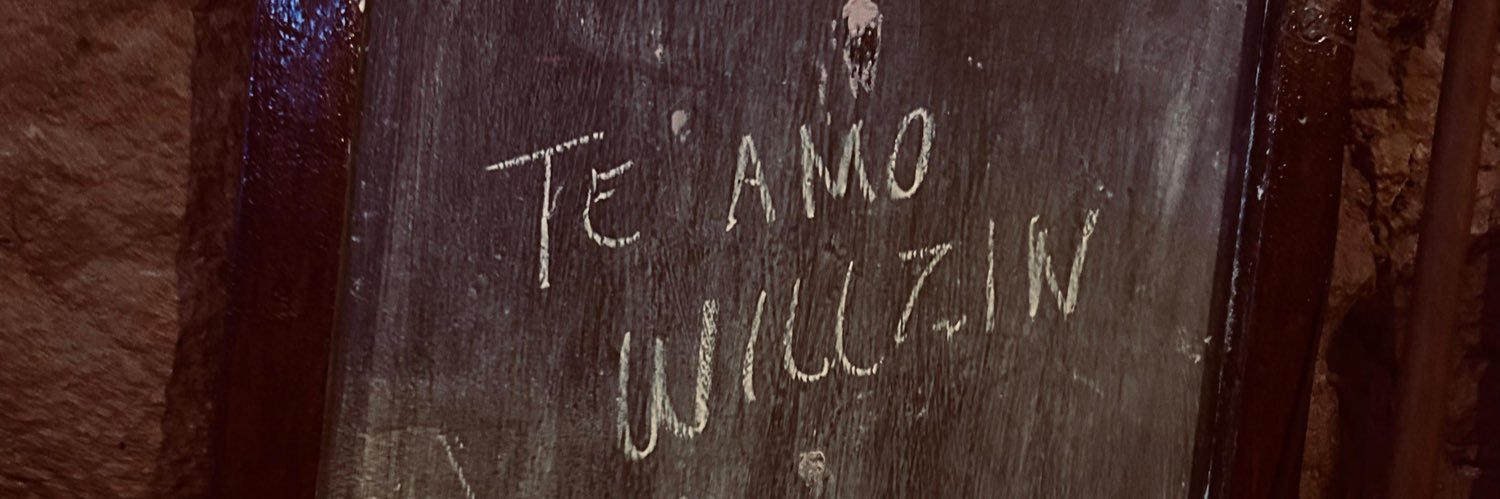 TE AMO
WILLZIN